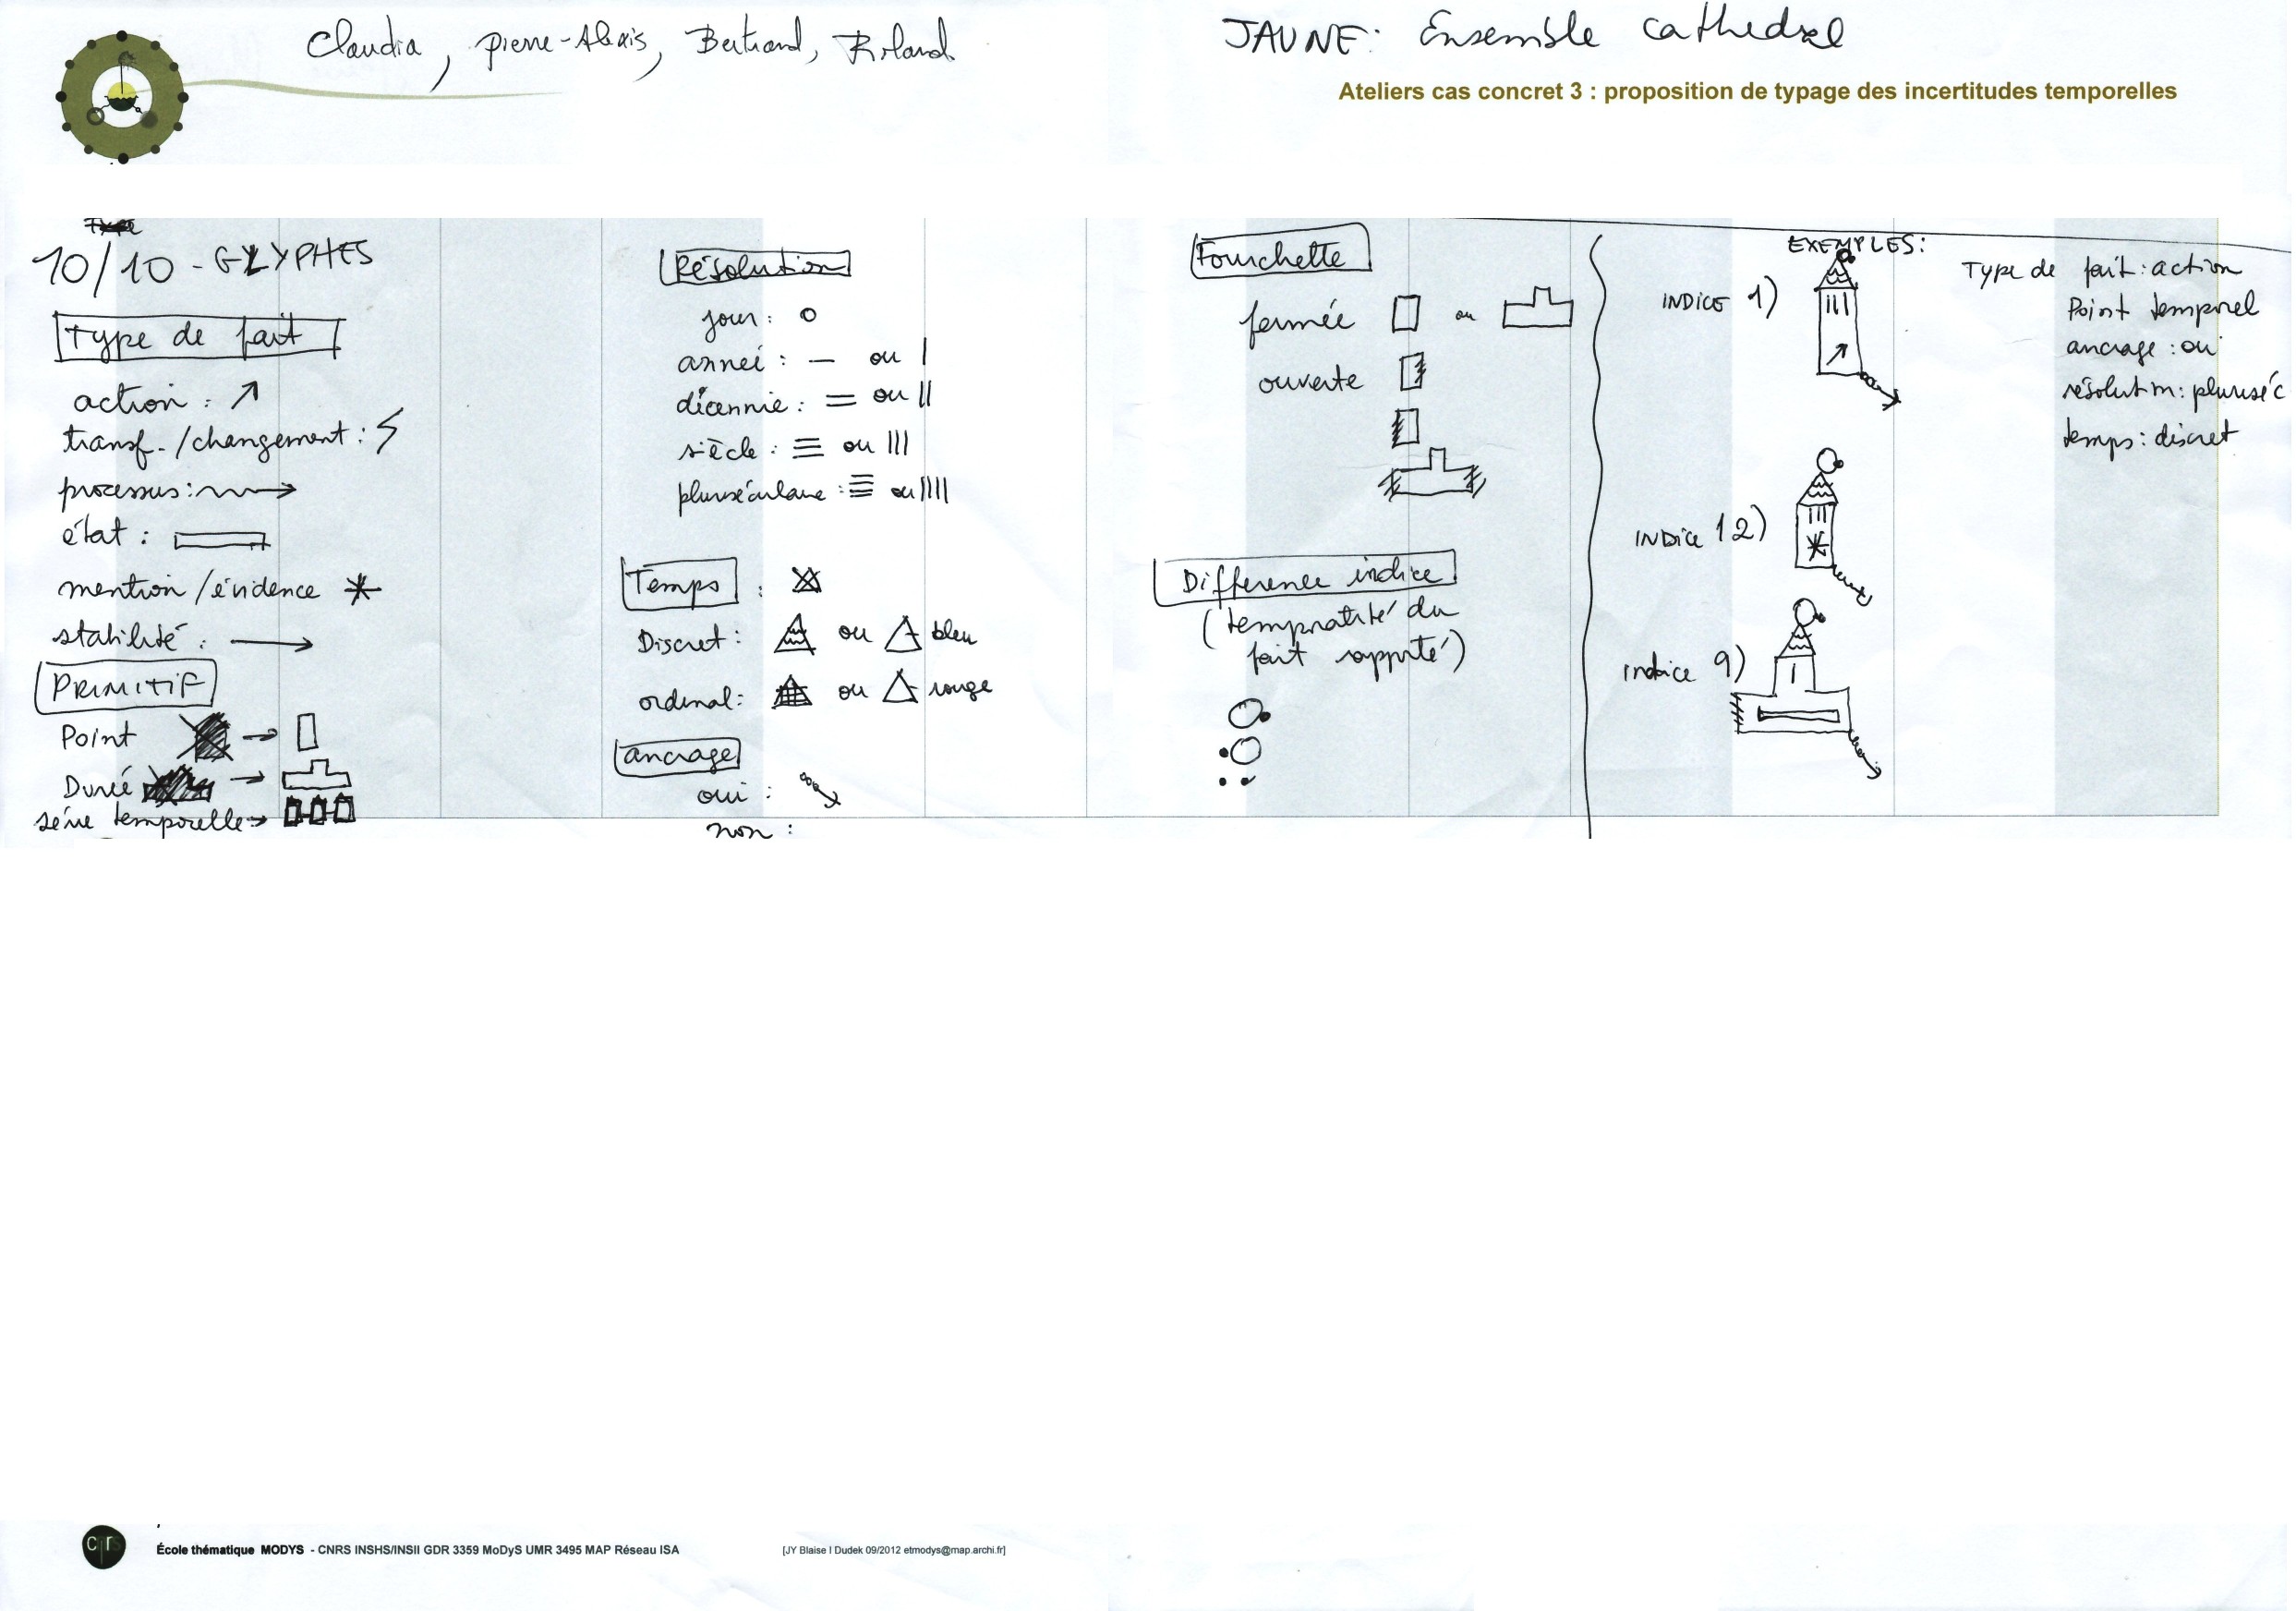 Claudia, Pierre-Alexis, Bertrand, Roland
JAUNE: Ensemble cathedral
Ateliers cas concret 3 : proposition de typage des incertitudes temporelles
10/10 - GLYPHES
Type de fait
action :
transf. / changement :
processus :
état :
mention / évidence
stabilité :
PRIMITIF
Point
Durée
série temporelle
Résolution
jour :
année : ou
décennie : ou
siècle : ou
pluriséculaire : ou
Temps :
Discret : ou bleu
ordinal : ou rouge
ancrage
oui :
non :
Fourchette
fermée ou
ouverte
Difference indice
(temporalité du
fait rapporté)
EXEMPLES :
INDICE 1)
Type de fait : action
Point temporel
ancrage : oui
résolution : pluriséc
temps : discret
INDICE 12)
Indice 9)
cnrs
École thématique MODYS - CNRS INSHS/INSII GDR 3359 MoDyS UMR 3495 MAP Réseau ISA
[JY Blaise I Dudek 09/2012 etmodys@map.archi.fr]